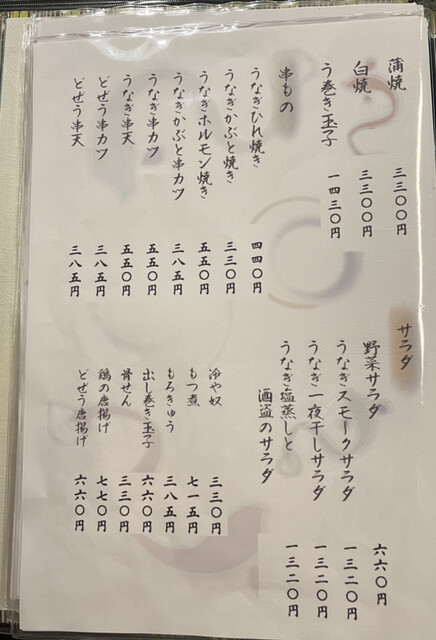 蒲焼 三三〇〇円
白焼 三三〇〇円
う巻き玉子 一四三〇円
串もの
うなぎひれ焼き 四四〇円
うなぎかぶと焼き 三三〇円
うなぎホルモン焼き 五五〇円
うなぎかぶと串カツ 三八五円
うなぎ串カツ 五五〇円
うなぎ串天 五五〇円
どぜう串カツ 三八五円
どぜう串天 三八五円
サラダ
野菜サラダ 六六〇円
うなぎスモークサラダ 一三二〇円
うなぎ一夜干しサラダ 一三二〇円
うなぎ塩蒸しと
酒盗のサラダ 一三二〇円
冷や奴 三三〇円
もつ煮 七一五円
もろきゅう 三八五円
出し巻き玉子 六六〇円
骨せん 三三〇円
鶏の唐揚げ 七七〇円
どぜう唐揚げ 六六〇円